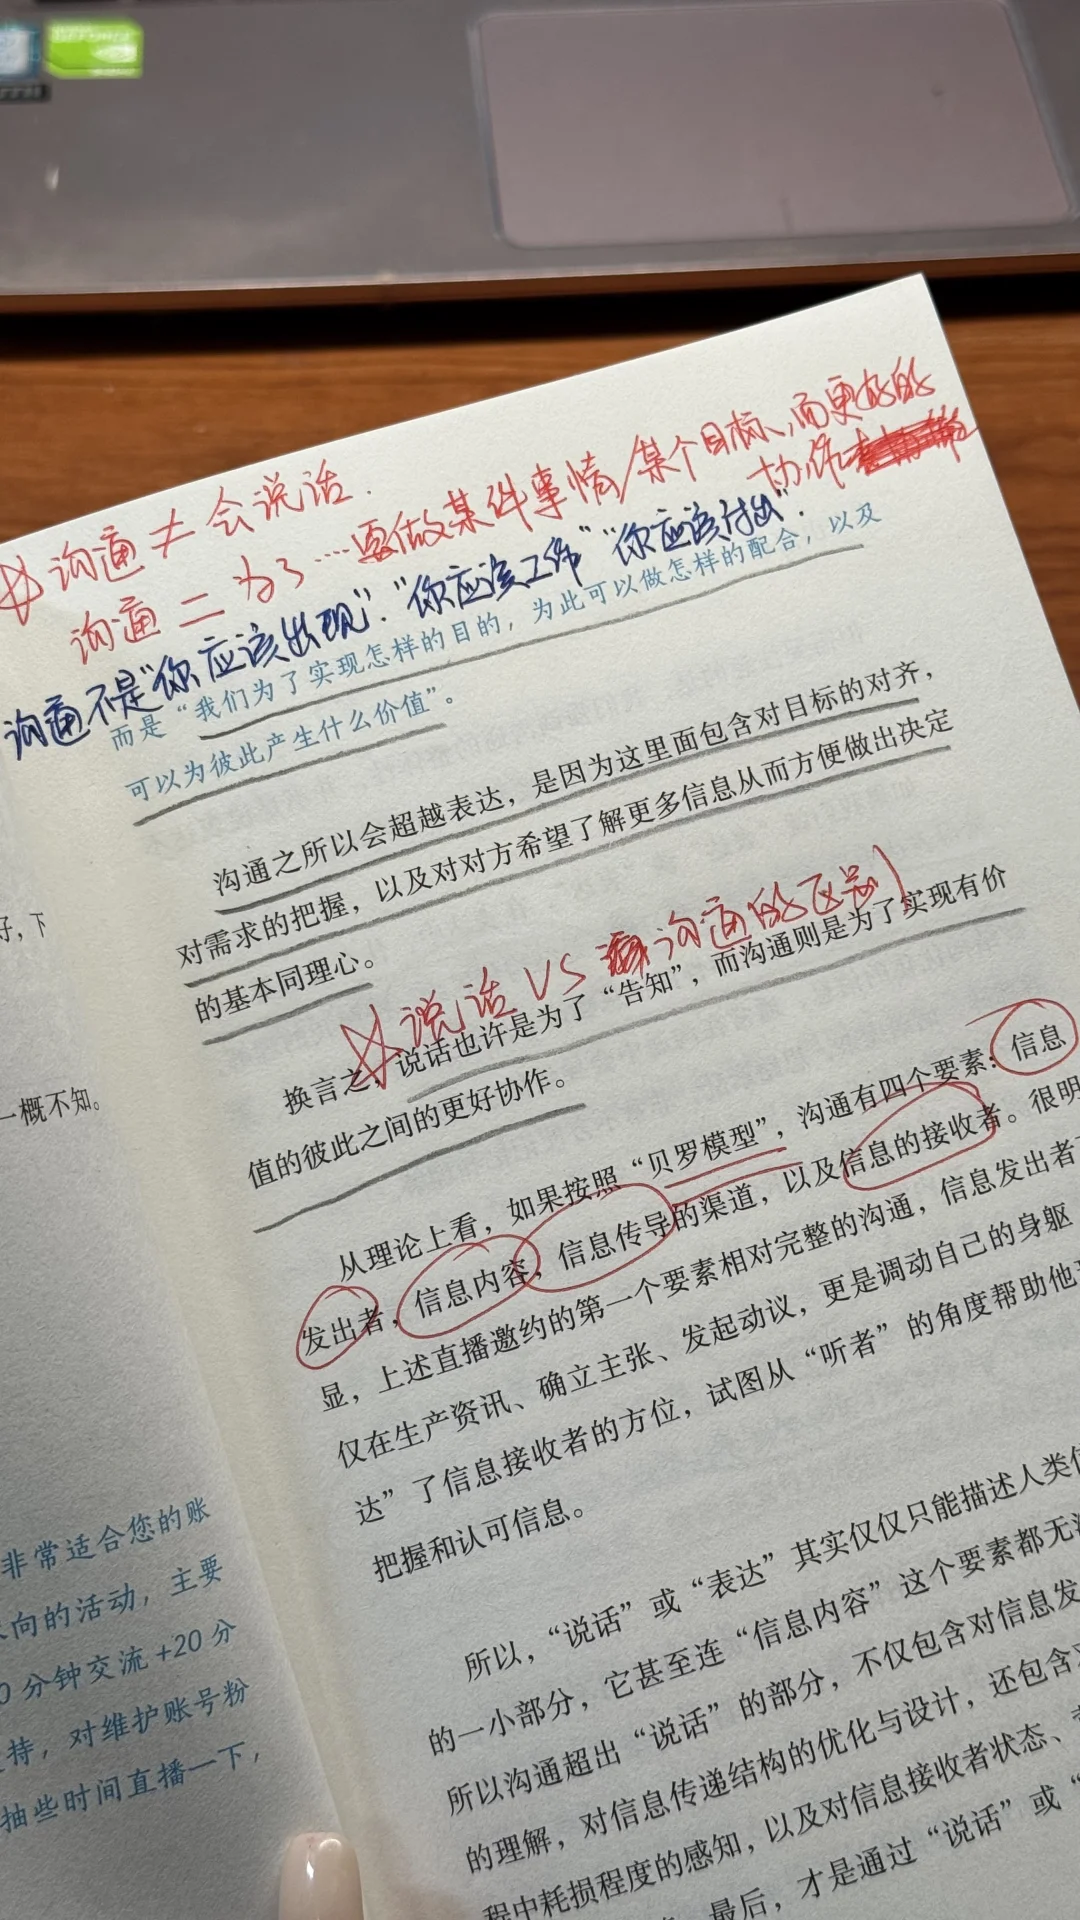 沟通≠会说话.
沟通 = 为了……要做某件事情/某个目标,而更好的
协作
沟通不是"你应该出现"."你应该工作""你应该付出".
而是“我们为了实现怎样的目的，为此可以做怎样的配合，以及
可以为彼此产生什么价值”。
沟通之所以会超越表达，是因为这里面包含对目标的对齐，
对需求的把握，以及对对方希望了解更多信息从而方便做出决定
的基本同理心。
说话VS 沟通的区别
换言之，说话也许是为了“告知”，而沟通则是为了实现有价
值的彼此之间的更好协作。
从理论上看，如果按照“贝罗模型”，沟通有四个要素：信息
发出者，信息内容，信息传导的渠道，以及信息的接收者。很明
显，上述直播邀约的第一个要素相对完整的沟通，信息发出者
仅在生产资讯、确立主张、发起动议，更是调动自己的身躯
达”了信息接收者的方位，试图从“听者”的角度帮助他
把握和认可信息。
所以，“说话”或“表达”其实仅仅只能描述人类
的一小部分，它甚至连“信息内容”这个要素都无
所以沟通超出“说话”的部分，不仅包含对信息发
的理解，对信息传递结构的优化与设计，还包含
程中耗损程度的感知，以及对信息接收者状态、
最后，才是通过“说话”或“
好，下
一概不知。
非常适合您的账
向的活动，主要
0 分钟交流 +20 分
持，对维护账号粉
抽些时间直播一下，